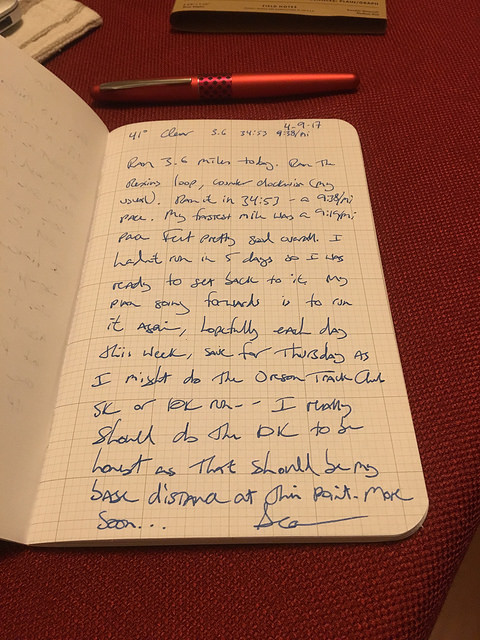 FIELD NOTES
4-9-17
41° Clear 3.6 34:53 9:38/mi
Ran 3.6 miles today. Ran the
loop, counter clockwise (my
usual). Ran it in 34:53 - a 9:38/mi
pace. My fastest mile was a 9:19/mi
pace Felt pretty good overall. I
hadn't run in 5 days so I was
ready to get back to it. My
plan going forwards is to run
it again, hopefully each day
this week, save for Thursday as
I might do the Oregon Track Club
5K or 10K run-- I really
should do the 10K to be
honest as that should be my
base distance at this point. More
soon...